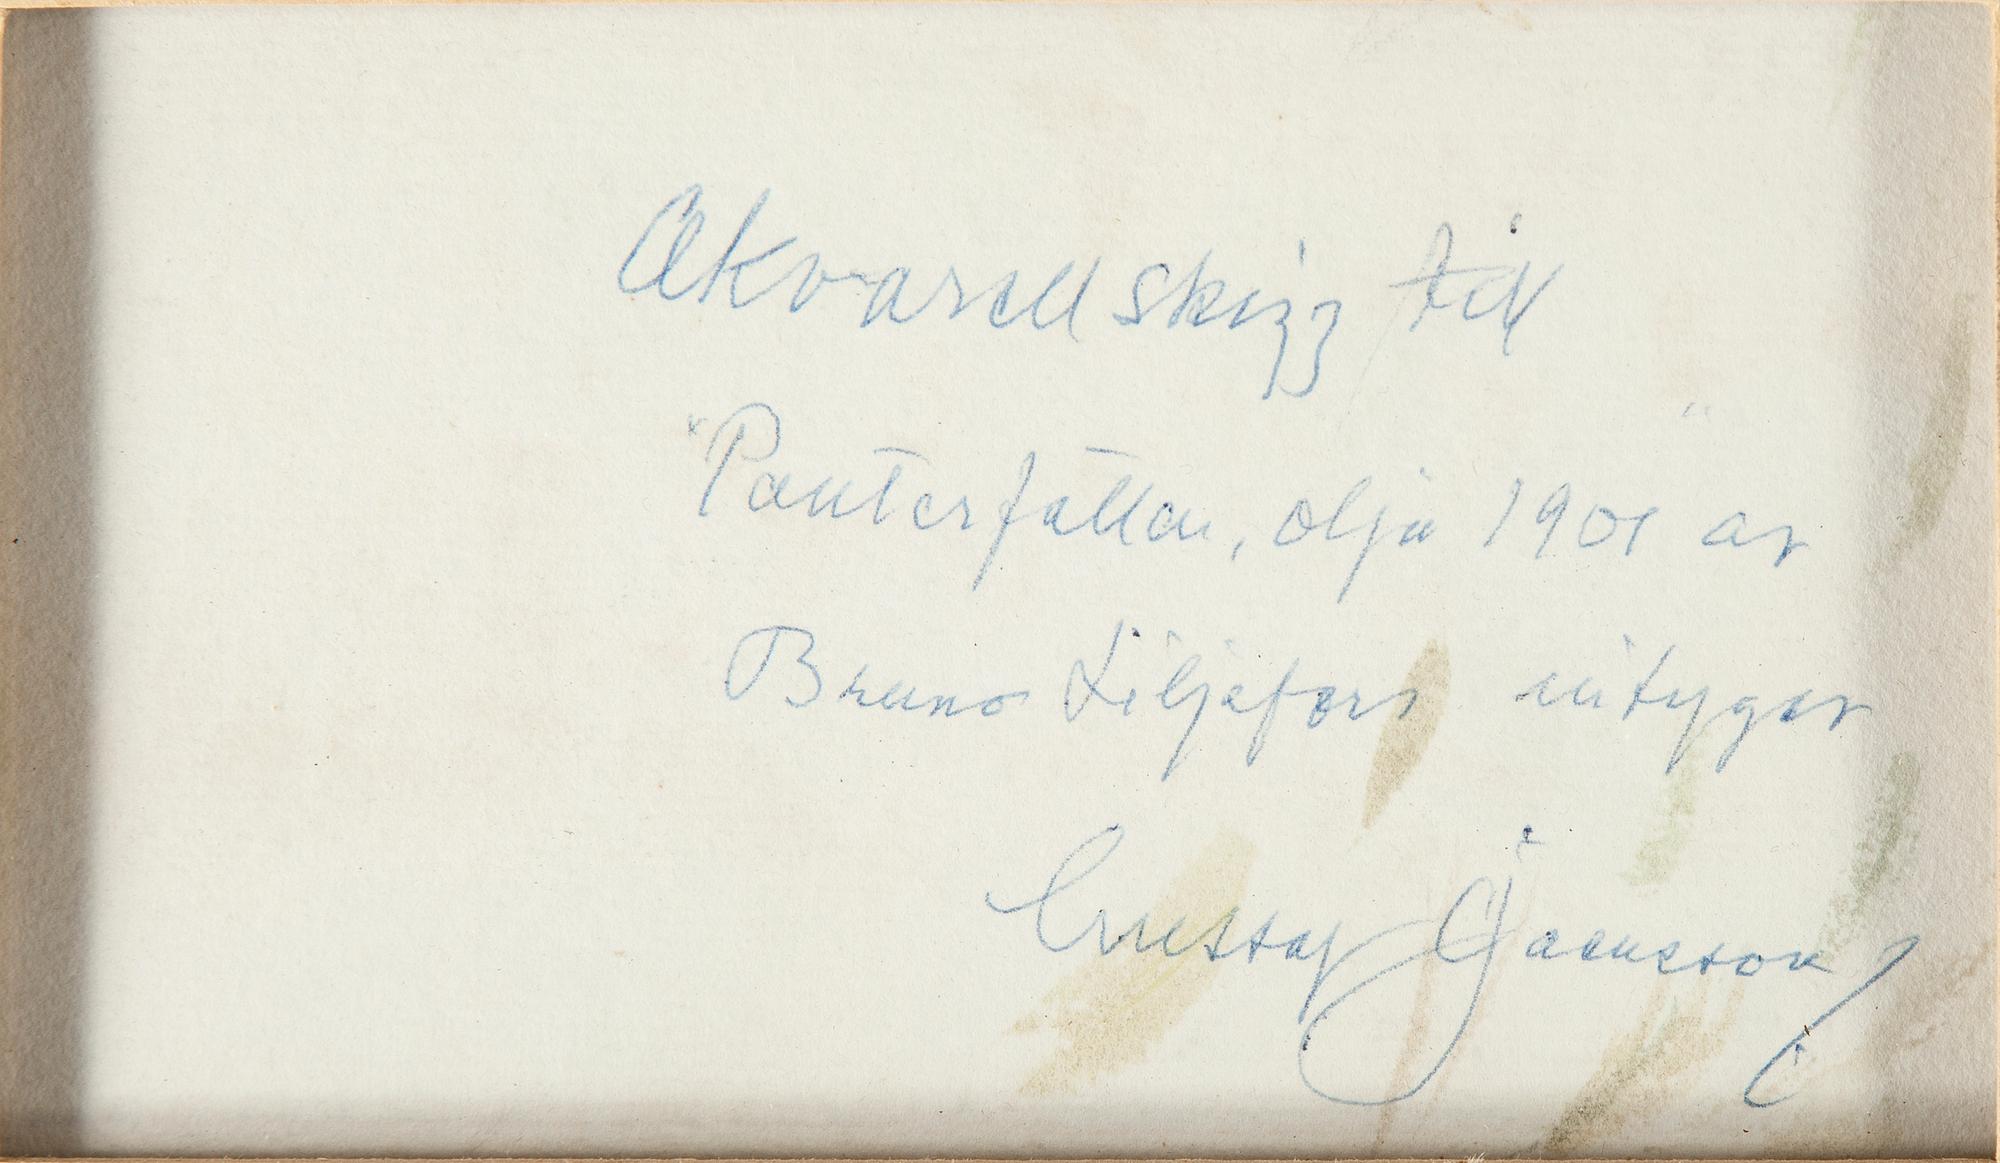 Akvarellskizz till
"Panterfällan, olja 1901 av "
Bruno Liljefors intygar
Gustaf Jaensson